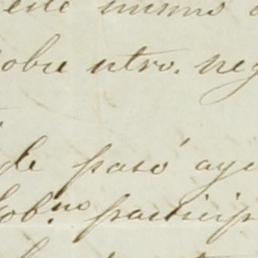 este mismo
sobre otro. neg
de pasó aye
Gob.no particip